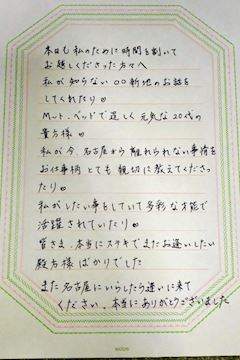 本日も私のために時間を割いて
お越しくださった方々へ
私が知らない〇〇新地のお話を
してくれたり♡
Mっト、ベッドで逞しく元気な20代の
貴方様♡
私が今、名古屋から離れられない事情を
お仕事柄とても親切に教えてくださっ
たり♡
私がしたい事をしていて多彩な才能で
活躍されていたり♡
皆さま、本当にステキでまたお逢いしたい
殿方様ばかりでした
また名古屋にいらしたら逢いに来て
ください。本当にありがとうございました